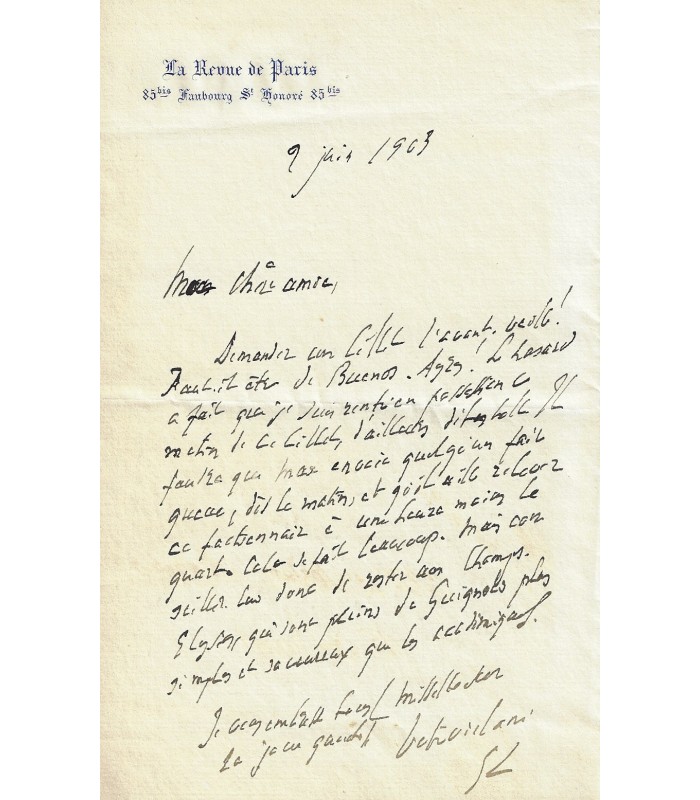 La Revue de Paris
85bis Faubourg St Honoré 85bis
9 juin 1903
Ma chère amie,
Demander un billet l'avant-veille!
Faut-il être de Buenos-Ayres! Le hasard
a fait que je suis rentré en possession ce
matin de ce billet, d'ailleurs détestable. Il
faudra que Max envoie quelqu'un faire
queue, dès le matin, et qu'il aille relever
ce factionnaire à une heure moins le
quart. Cela se fait beaucoup. Mais con
seillez lui donc de rester aux Champs-
Elysées qui sont pleins de Guignols plus
simples et savoureux que les académiques.
Je vous embrasse tous
la joue gauche Votre vieil ami
GL